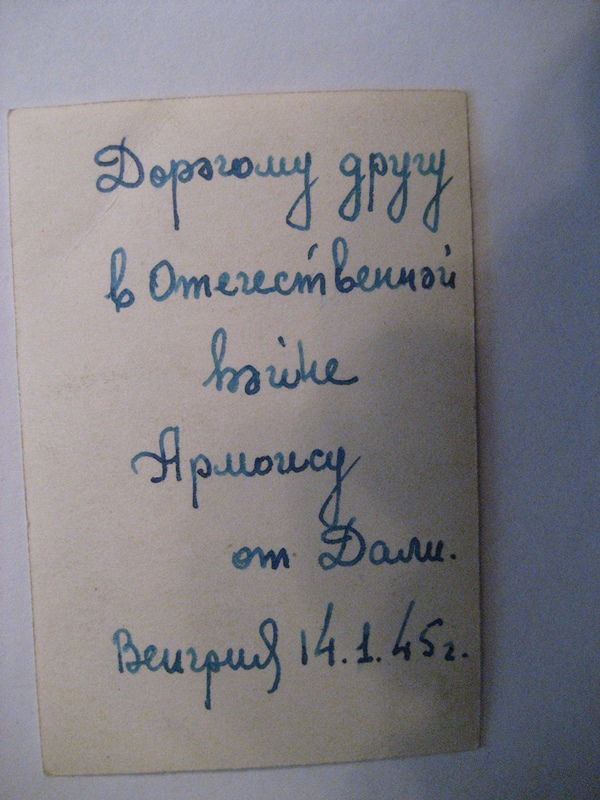 Дорогому другу
в Отечественной
войне
от Дали.
Венгрия 14.1.45г.